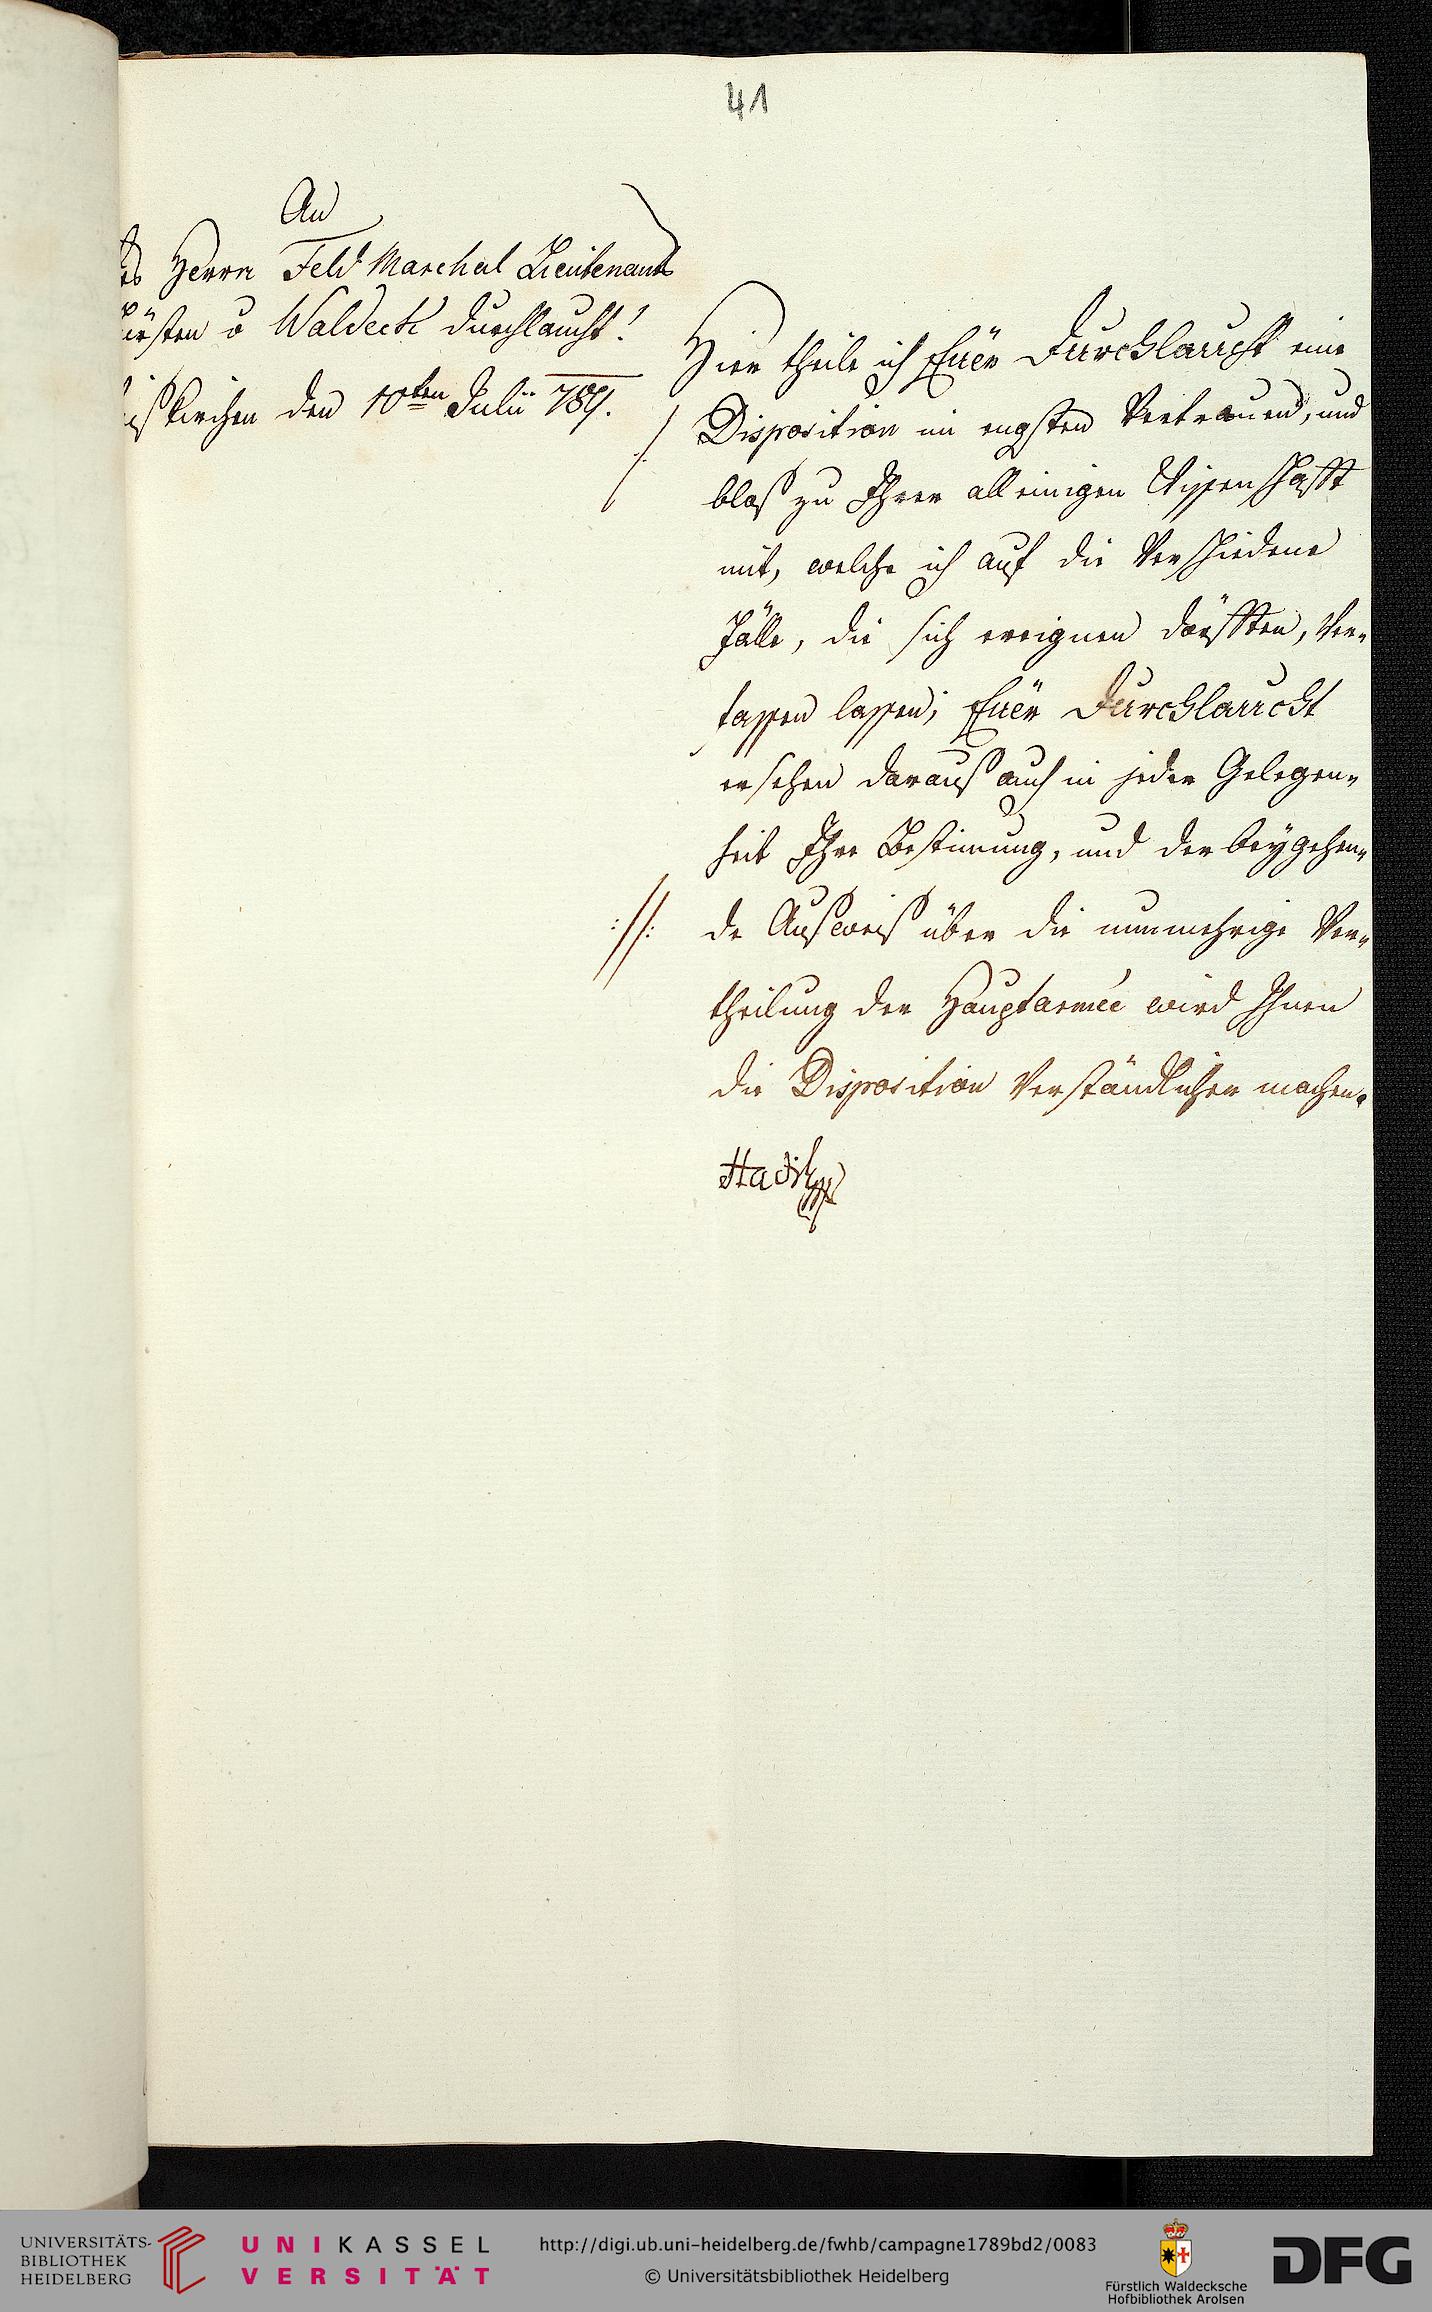 41
An
des Herrn Feld Marchal Lieutenants
Fürsten v Waldeck Durchlaucht!
kirchen den 10ten Julii 789.
Hier theile ich Euer Durchlaucht eine
./. Disposition im engsten Vertrauen, und
bloß zu Ihrer alleinigen Wissenschafft
mit, welche ich auf die Verschiedene
Fälle, die sich ereignen dörfften, Ver-
fassen lassen; Euer Durchlaucht
ersehen darauß auch in jeder Gelegen-
heit Ihre Bestimung, und der beygehen-
://: de Außweiß über die nunmehrige Ver-
theilung der Hauptarmée wird Ihnen
die Disposition Verständlicher machen.
Hadik
UNIVERSITÄTS-
BIBLIOTHEK
HEIDELBERG
UNIKASSEL
VERSITÄT
http://digi.ub.uni-heidelberg.de/fwhb/campagne1789bd2/0083
© Universitätsbibliothek Heidelberg
Fürstlich Waldecksche
Hofbibliothek Arolsen
DFG